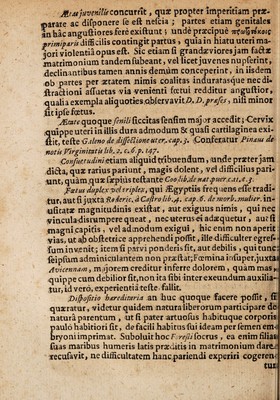 Ætas juvenilis concurrit, quæ propter imperitiam præ-
parate ac disponere se est nescia; partes etiam genitales
an hâc angustiores fere existunt; unde præcipuè
primiparis difficilis contingit partus, quia in hiatu uteri ma-
jori violentiâ opus est. Sic etiam si grandæviores jam factæ
matrimonium tandem subeant, vel licet juvenes nupserint,
declinantibus tamen annis demùm conceperint, in iisdem
ob partes per ætatem nimis coalitas induratasque nec di-
stractioni assuetas via venienti fœtui redditur angustior,
qualia exempla aliquoties observavit D. D. præses, nisi minor
sit ipse fœtus.
Ætate quoque senili siccitas sensim major accedit; Cervix
quippe uteri in illis dura admodum & quasi cartilaginea exi-
stit, teste Galeno de dissectione uter. cap. 3. Conferatur Pinæus de
notis Virginitatis lib. 2. c. 6. p. 147.
Consuetudini etiam aliquid tribuendum, unde præter jam
dicta, quæ rarius pariunt, magis dolent, vel difficilius pari-
unt, quàm quæ sæpius testante
Fœtus duplex vel triplex, qui Ægyptiis frequens esse tradi-
tur, aut si juxta Roderic. à Castro lib. 4. cap. 8. de morb. mulier. in-
usitatæ magnitudinis existat, aut exiguus nimis, qui nec
vincula disrumpere queat, nec uterus ei adæquetur, aut si
magni capitis, vel admodum exigui, hic enim non aperit
vias, ut ab obstetrice apprehendi possit, ille difficulter egres-
sum invenit; item si parvi ponderis sit, aut debilis, qui tunc
seipsum adminiculantem non præstat; Fœmina insuper, juxta
Avicennam, majorem creditur inferre dolorem, quam mas,
quippe cum debilior sit, non ita sibi inter exeundum auxilia-
tur, id verò, experientiâ teste, fallit.
Dispositio hæreditaria an huc quoque facere possit, si
quæratur, videtur quidem natura liberorum participare de
naturâ parentum, ut si pater artuosus habituque corporis
paulò habitiori sit, de facili habitus sui ideam per semen em-
bryoni imprimat. Suboluit hoc Foresti socrus, ea enim filiam
suas maribus humeris latis præditis in matrimonium dare
recusavit, ne difficultatem hanc pariendi experiri cogeren-
tur